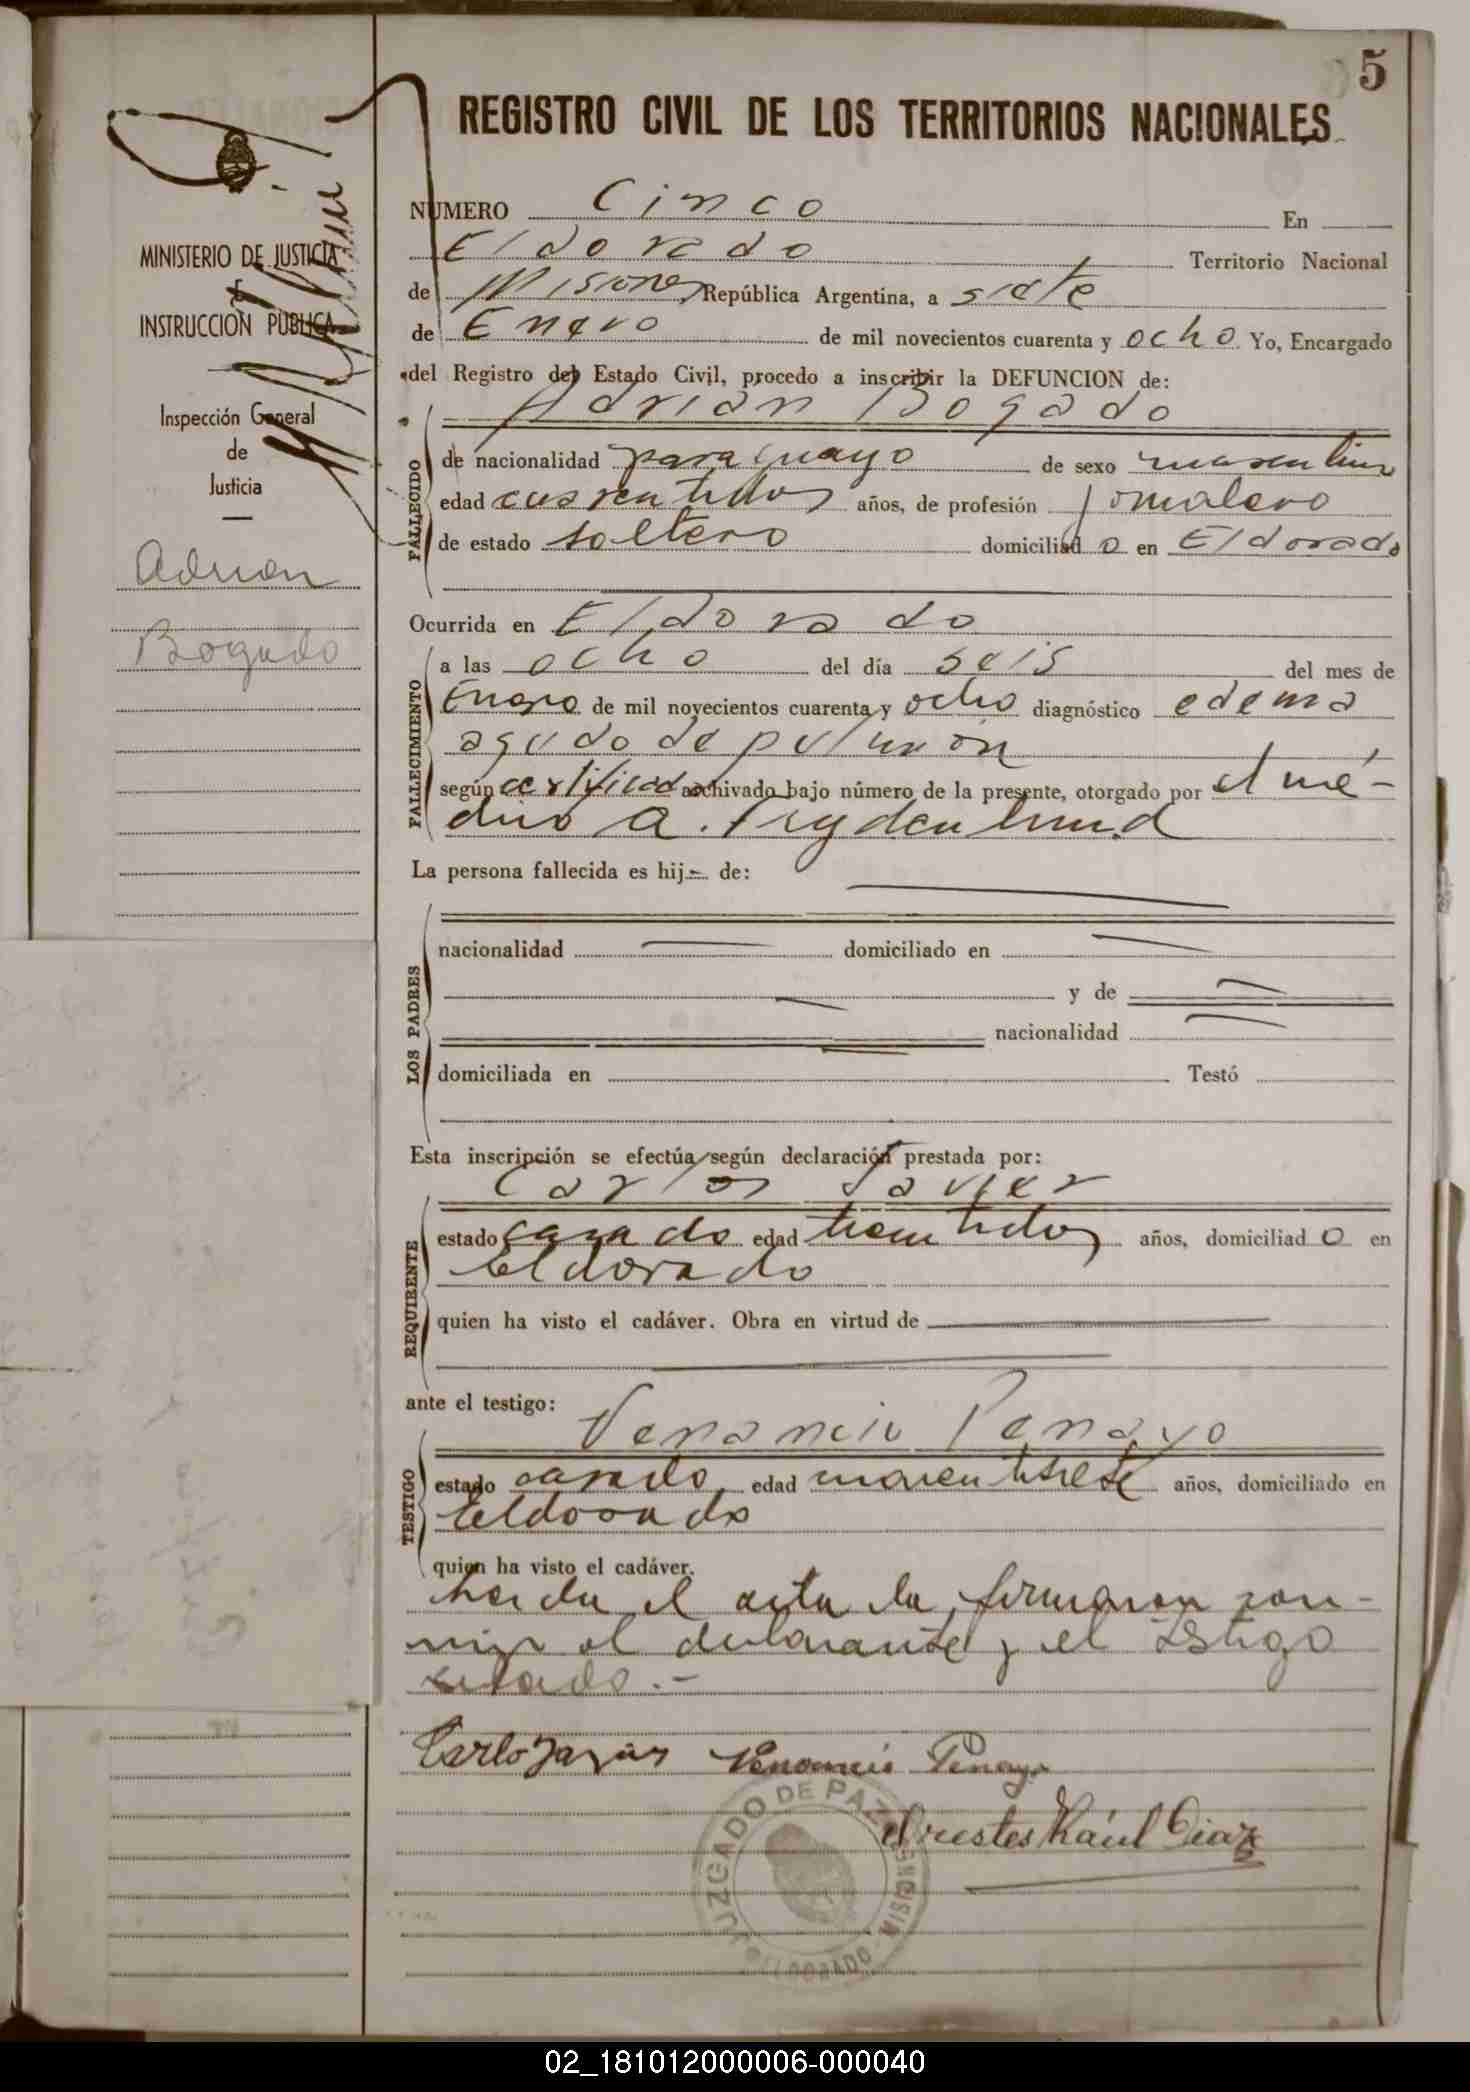 5
REGISTRO CIVIL DE LOS TERRITORIOS NACIONALES
MINISTERIO DE JUSTICIA
E
INSTRUCCION PUBLICA
Inspección General
de
Justicia
Adrian
Bogado
NUMERO Cinco En
Eldorado Territorio Nacional
de Misiones República Argentina, a siete
de Enero de mil novecientos cuarenta y ocho Yo, Encargado
del Registro del Estado Civil, procedo a inscribir la DEFUNCION de:
Adrian Bogado
FALLECIDO
de nacionalidad paraguayo de sexo masculino
edad cuarentidos años, de profesión jornalero
de estado soltero domiciliad o en Eldorado
Ocurrida en Eldorado
FALLECIMIENTO
a las ocho del día seis del mes de
Enero de mil novecientos cuarenta y ocho diagnóstico edema
agudo de pulmon
según certificado archivado bajo número de la presente, otorgado por el mé-
dico A. Frydenlund
La persona fallecida es hij de:
LOS PADRES
nacionalidad domiciliado en
y de
nacionalidad
domiciliada en Testó
Esta inscripción se efectúa según declaración prestada por:
Carlos Javier
REQUIRENTE
estado casado edad treintidos años, domiciliad o en
Eldorado
quien ha visto el cadáver. Obra en virtud de
ante el testigo:
Venancio Penayo
TESTIGO
estado casado edad años, domiciliado en
Eldorado
quien ha visto el cadáver.
Leida el acta la firmaron con-
migo el declarante y el testigo
citado.-
Carlo Venancio Penayo
Orestes Raúl Diaz
JUZGADO DE PAZ
ELDORADO - MISIONES
02_181012000006-000040